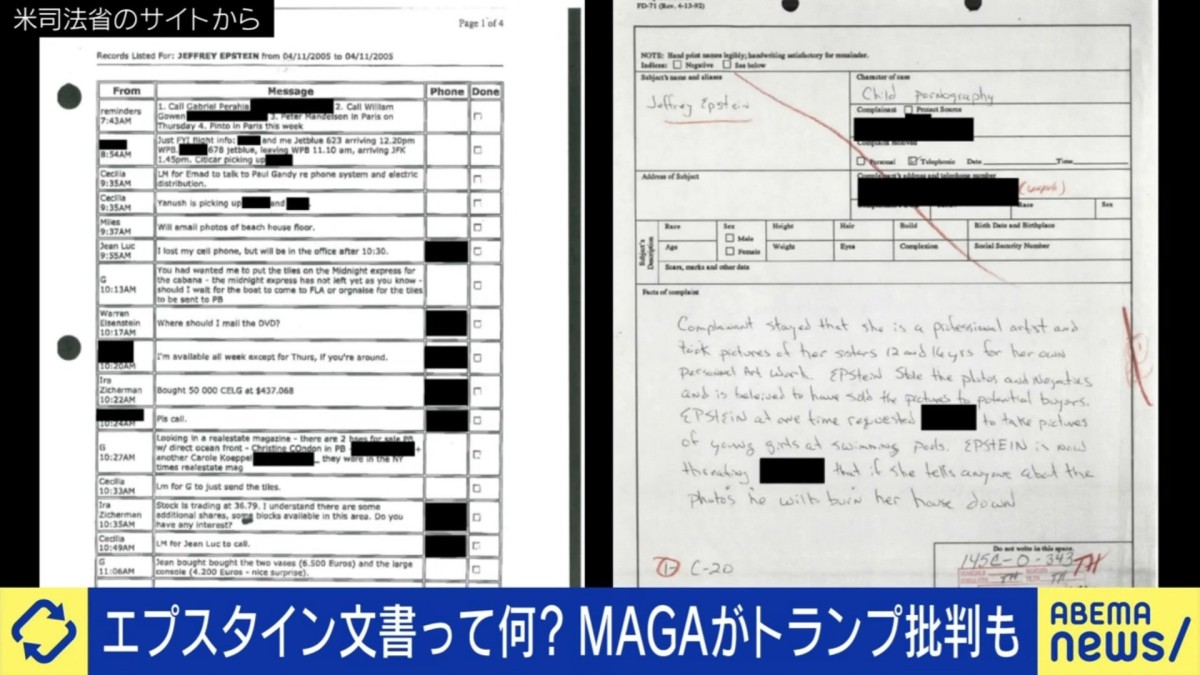 米司法省のサイトから
Page 1 of 4
Records Listed For: JEFFREY EPSTEIN from 04/11/2005 to 04/11/2005
From Message Phone Done
reminders
7:43AM
1. Call Gabriel Perahia 2. Call William
Gowen 3. Peter Mandelson in Paris on
Thursday 4. Pinto in Paris this week
8:54AM
Just FYI flight info: and me Jetblue 623 arriving 12.20pm
WPB. 678 jetblue, leaving WPB 11.10 am, arriving JFK
1.45pm. Citicar picking up
Cecilia
9:35AM
LM for Emad to talk to Paul Gandy re phone system and electric
distribution.
Cecilia
9:35AM
Yanush is picking up and
Miles
9:37AM
Will email photos of beach house floor.
Jean Luc
9:55AM
I lost my cell phone, but will be in the office after 10:30.
G
10:13AM
You had wanted me to put the tiles on the Midnight express for
the cabana - the midnight express has not left yet as you know -
should I wait for the boat to come to FLA or orgnaise for the tiles
to be sent to PB
Warren
Eisenstein
10:17AM
Where should I mail the DVD?
10:20AM
I'm available all week except for Thurs, if you're around.
Ira
Zicherman
10:22AM
Bought 50 000 CELG at $437.068
10:24AM
Pls call.
G
10:27AM
Looking in a realestate magazine - there are 2 hses for sale PB
w/ direct ocean front - Christine COndon in PB +
another Carole Koeppel , they were in the NY
times realestate mag
Cecilia
10:33AM
Lm for G to just send the tiles.
Ira
Zicherman
10:35AM
Stock is trading at 36.79. I understand there are some
additional shares, some blocks available in this area. Do you
have any interest?
Cecilia
10:49AM
LM for Jean Luc to call.
G
11:06AM
Jean bought bought the two vases (6.500 Euros) and the large
console (4.200 Euros - nice surprise).
FD-71 (Rev. 4-13-92)
NOTE: Hand print names legibly; handwriting satisfactory for remainder.
Indices: Negative See below
Subject's name and aliases
Jeffrey Epstein
Character of case
Child pornography
Complainant Protect Source
Complaint received
Personal Telephonic Date Time
Address of Subject
Complainant's address and telephone number
Race Sex
Subject's Description
Race Sex Height Hair Build Birth Date and Birthplace
Male
Female
Age Weight Eyes Complexion Social Security Number
Scars, marks and other data
Facts of complaint
Complainant stayed that she is a professional artist and
took pictures of her sisters 12 and 16 yrs for her own
personal Art work. EPstein stole the photos and negatives
and is beleived to have sold the pictures to potential buyers.
EPSTEIN at one time requested to take pictures
of young girls at swimming pools. EPSTEIN is now
threating that if she tells anyone about the
photos he will burn her house down
Do not write in this space.
1 C-20
145C-0-343
TH
エプスタイン文書って何? MAGAがトランプ批判も
ABEMA
news/